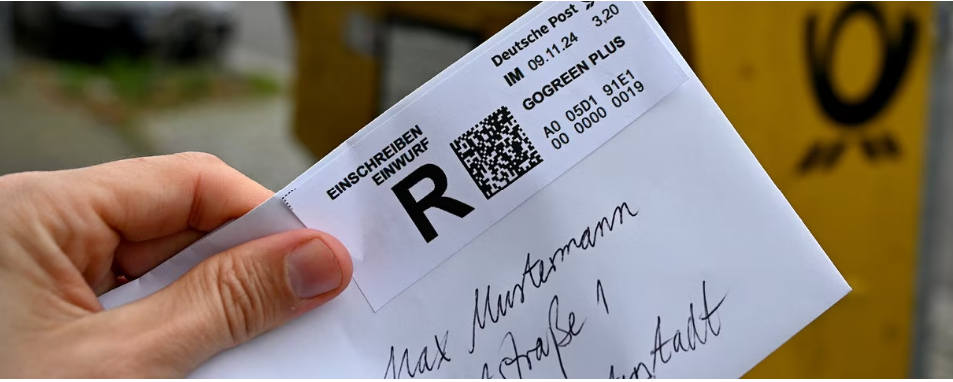 Deutsche Post
3,20
IM 09.11.24
GOGREEN PLUS
A0 05D1 91E1
00 0000 0019
EINSCHREIBEN
EINWURF
R
Max Mustermann
straße 1
stadt